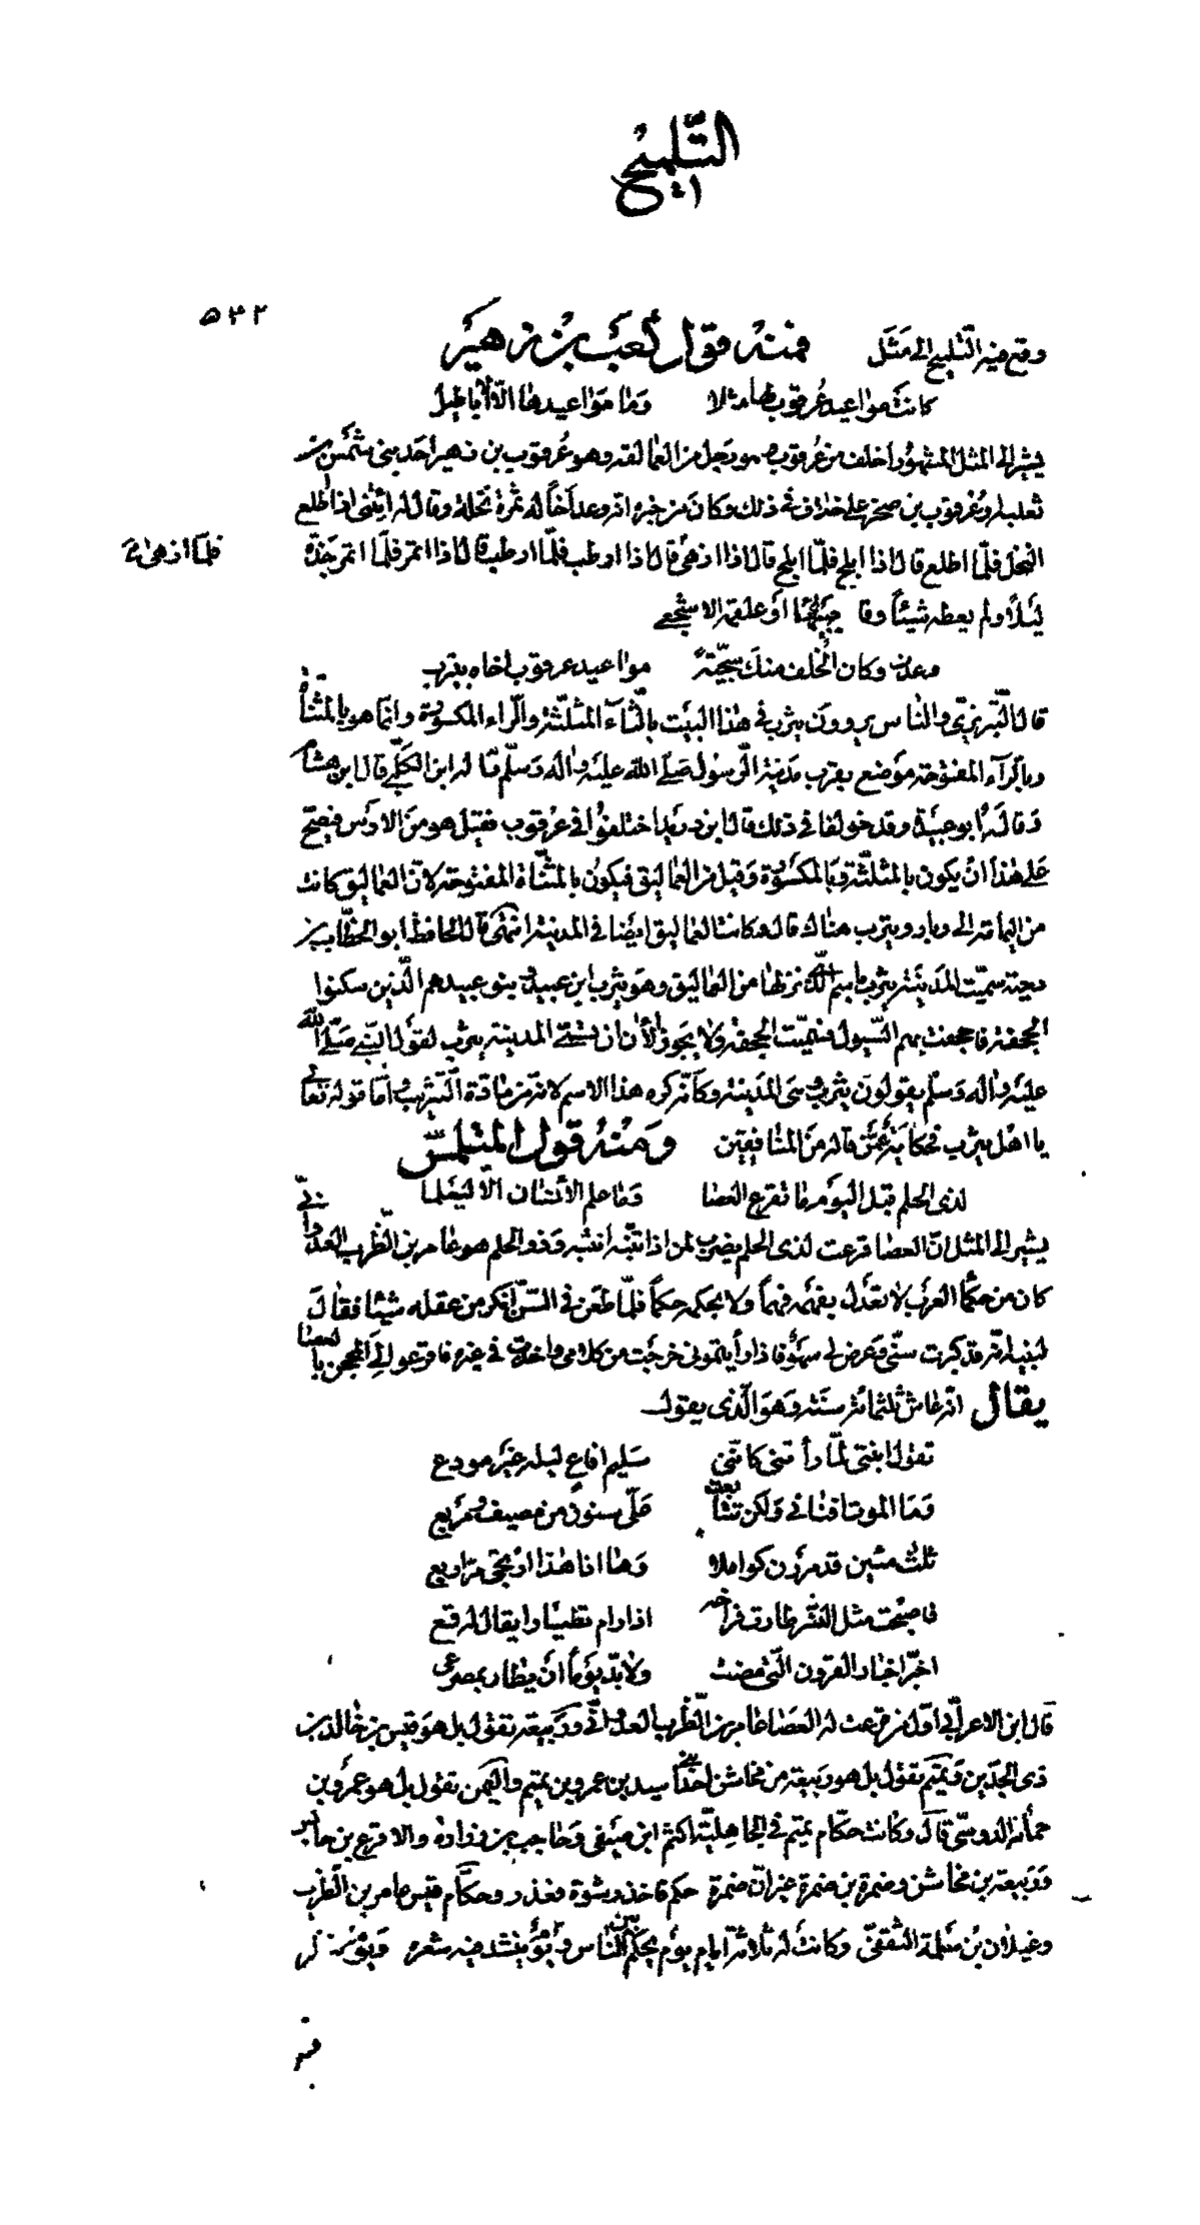 التلميح
٥٣٢
وقع فيه التلميح الى مَثَل فمنه قول كعب بن زهير
كانت مواعيد عُرقوب لها مثلا وَما مَواعيدها الّا الأباطيل
يشير الى المثل المشهور اخلف من عُرقوب هو رجل من العمالقه وهو عُرقوب بن زهير احد بنى شمس بن
ثعلبه او عُرقوب بن صخر على خلاف فى ذلك وكان من خبره انه وعد اخاً له ثمرة نخلة وقال له ائتنى اذا اطلع
النخل فلمّا اطلع قال اذا ابلح فلمّا ابلح قال اذا ازهى قال اذا ارطب فلمّا ارطب قال اذا اتمر فلمّا اتمر جَذّه
فلمّا ازهى
ليَلاً ولم يعطه شيئاً وقا جبيها او علقمة الاشجعى
وعدت وكان الخلف منك سجيّة مواعيد عرقوب اخاه بيترب
قال التبريزى والناس يروون يثرب فى هذا البيت بالثّآء المثلّثه والراء المكسورة وانّما هو بالمثنّاة
وبالرآء المفتوحه موضع بقرب مدينة الرّسول صلى اللّه عليه واله وسلّم قاله ابن الكلبى قال ابن هشام
وقاله ابو عبيدة وقد خولفا فى ذلك قال ابن دريد اختلفوا فى عرقوب فقيل هو من الاوس فيصحّ
على هذا ان يكون بالمثلّثة وبالمكسورة وقيل من العماليق فيكون بالمثنّاة المفتوحة لانّ العماليق كانت
من اليمامه الى وبار ويترب هناك قال وكانت العماليق ايضا فى المدينة انتهى قال الحافظ ابو الخطّاب بن
دحية سمّيت المدينة يثرب باسم الّذى نزلها من العماليق وهو يثرب ابن عبيد وبنو عبيد هم الّذين سكنوا
الجحفة فاجحفت بهم السّيول فسمّيت الجحفة ولا يجوز الأن ان تسمّى المدينة يثرب لقول النّبى صلّى اللّه
عليه واله وسلّم يقولون يثرب وهى المدينة وكأنّه كره هذا الاسم لانّه من مادّة التّثريب وامّا قوله تعالى
يا اهل يثرب فحكاية عمّن قاله من المنافقين ومنه قول المتلمّس
لذى الحلم قبل اليوم ما تقرع العصا وما علم الانسان الّا ليعلما
يشير الى المثل انّ العصا قرعت لذى الحلم يضرب لمن اذا نبّه انتبه وذو الحلم هو عامر بن الظّرب العدوانى
كان من حكّام العرب لا تعدل بفهمه فهماً ولا بحكمه حكماً فلمّا طعن فى السّنّ انكر من عقله شيئا فقال
لبنيه انّه قد كبرت سنّى وعرض لى سهو فاذا رأيتمونى خرجت من كلامى واخذت فى غيره فاقرعوا لى المجن بالعصا
يقال انّه عاش ثلثمائة سنة وهو الّذى يقول
تقول ابنتى لمّا رأتنى كانّنى سليم افاع ليله غير مودع
وما الموت افنانى ولكن تتابعت علىّ سنون من مصيف ومربع
ثلث مئين قد مررن كواملا وها انا هذا ارتجى مرّ اربع
فاصبحت مثل النّسر طارت فراخه اذا رام تطيارا يقال له قع
اخبّر اخبار القرون الّتى مضت ولا بدّ يوماً ان يطار بمصرعى
قال ابن الاعرابى اوّل من قرعت له العصا عامر بن الظّرب العدوانى وربيعه تقول بل هو قيس بن خالد بن
ذى الجدّين وتميم تقول بل هو ربيعه بن مخاشن احد بنى اسيد بن عمرو بن تميم واليمن تقول بل هو عمرو بن
حمامه الدوسى قال وكانت حكّام تميم فى الجاهليّة اكثم ابن صيفى وحاجب بن زراره والاقرع بن حابس
وربيعه بن مخاشن وضمرة بن ضمرة غير انّ ضمرة حكم فاخذ رشوة فغدر وحكّام قيس عامر بن الظّرب
وغيلان بن سلمة الثقفىّ وكانت له ثلاثة ايام يوم يحكم بين النّاس ويوم ينشد فيه شعره ويوم ينظر
فيه